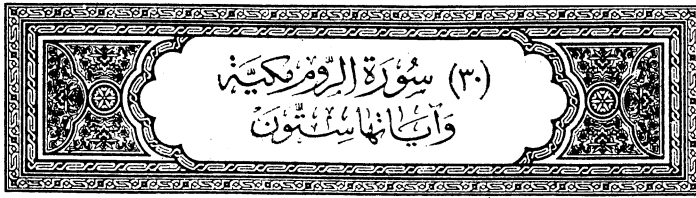 (٣٠) سُورَة الرّوم مكيّة
وَآيَاتهَا سِتُّونَ